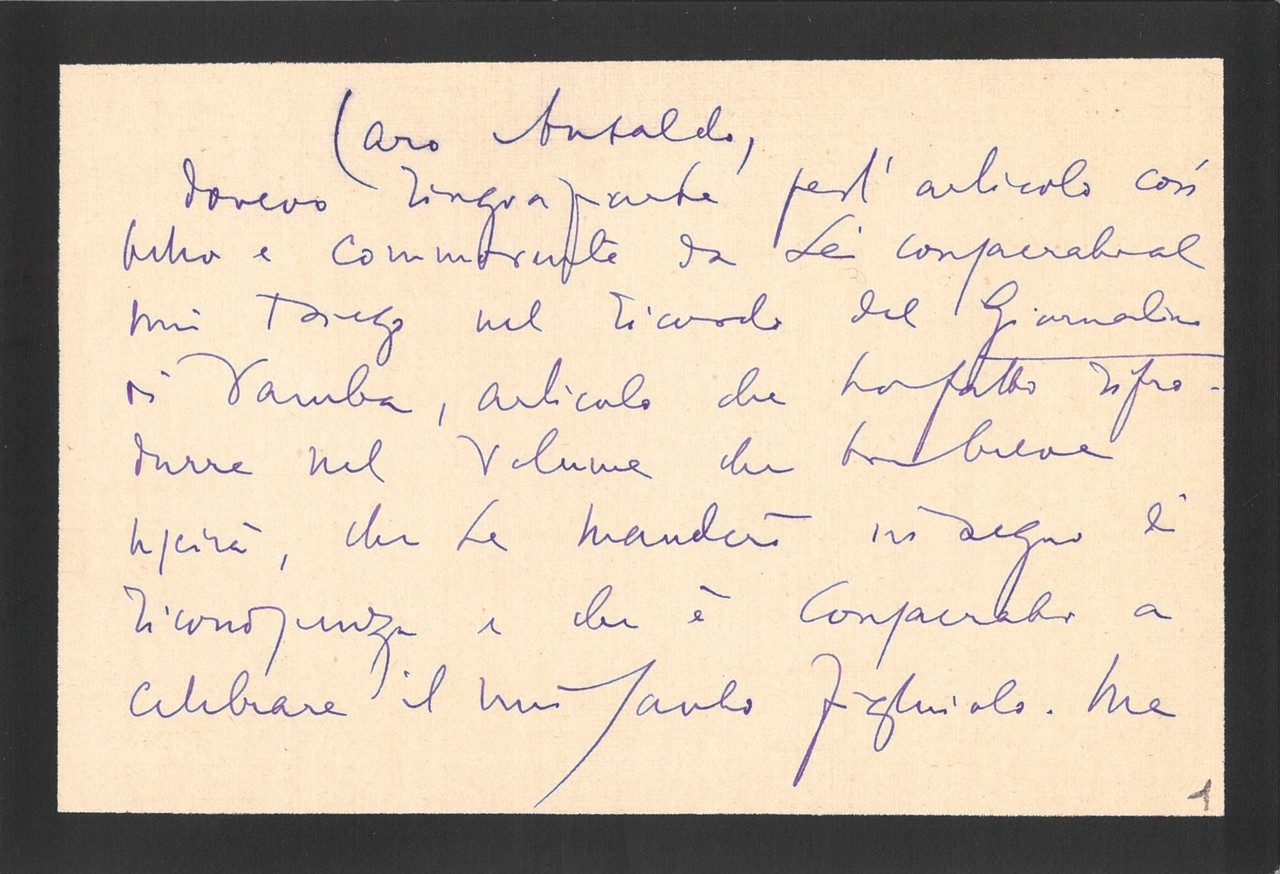 Caro Ansaldo,
dovevo ringraziarLa per l'articolo così
bello e commovente da Lei consacrato al
mio Diego nel ricordo del Giornalino
di Vamba, articolo che ho fatto ripro-
durre nel volume che tra breve
uscirà, che Le manderò in segno di
riconoscenza e che è consacrato a
celebrare il mio santo figliuolo. Ma
1